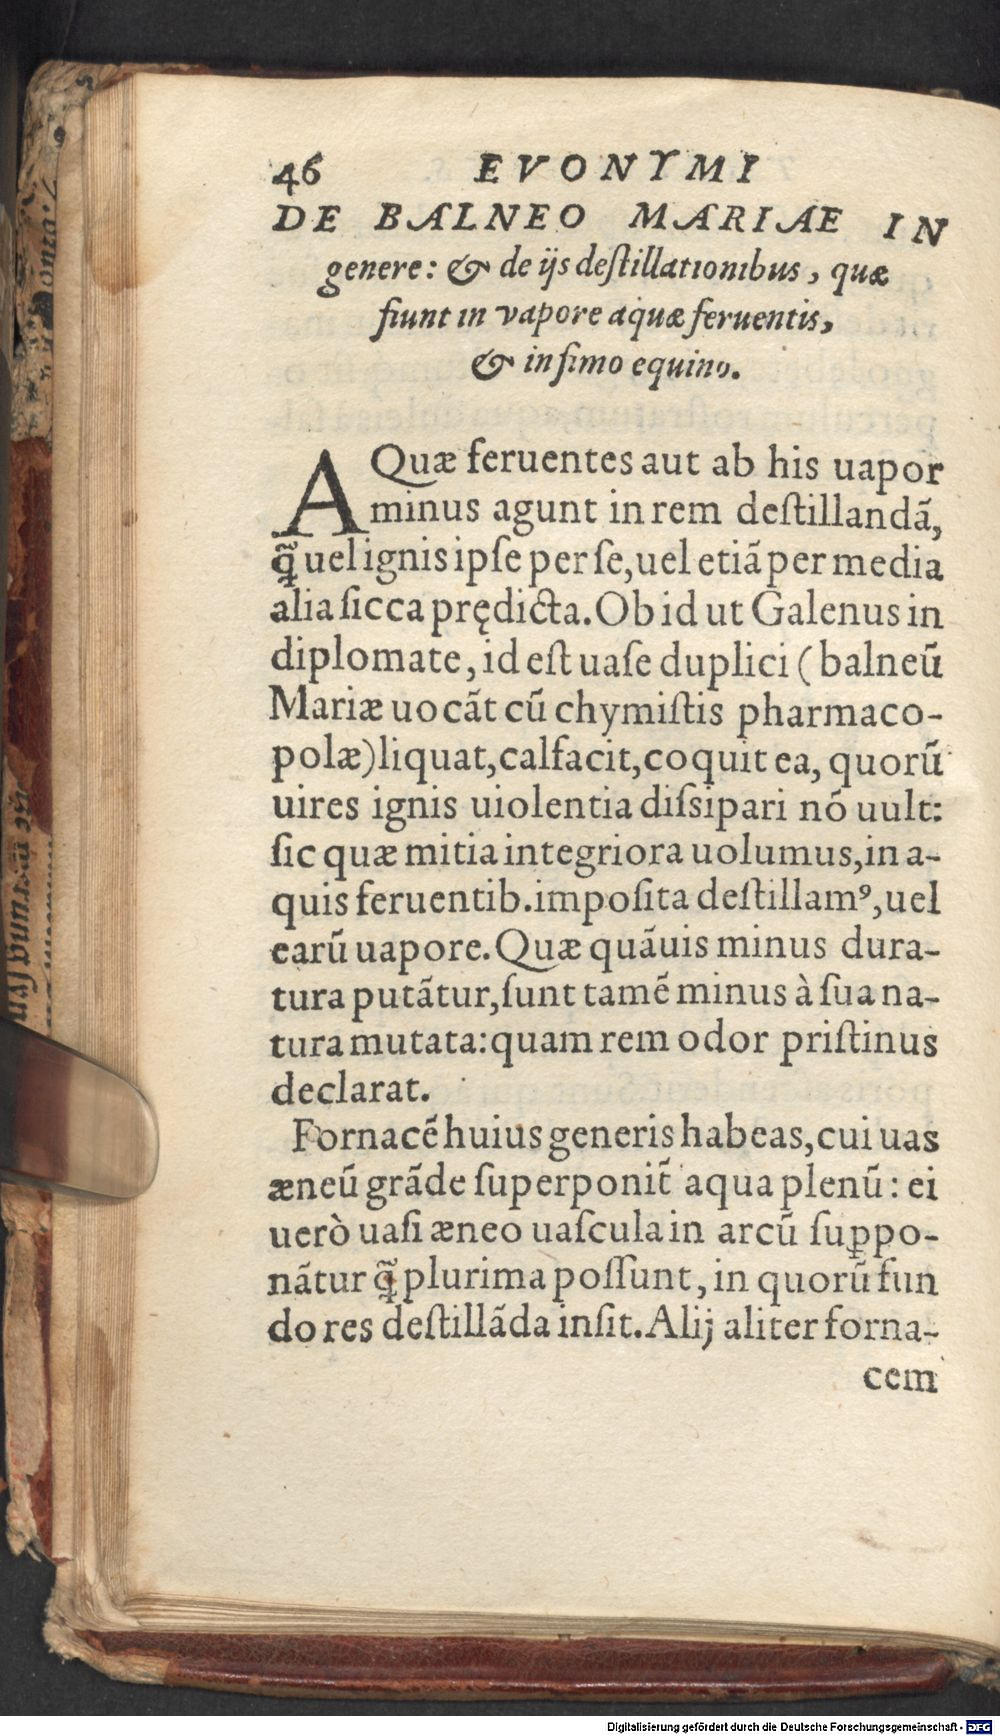 46 EVONYMI
DE BALNEO MARIAE IN
genere: & de ijs deſtillationibus, quæ
fiunt in vapore aquæ feruentis,
& in fimo equino.
AQuæ feruentes aut ab his uapor
minus agunt in rem deſtillandā,
q̃ uel ignis ipſe per ſe, uel etiā per media
alia ſicca prędicta. Ob id ut Galenus in
diplomate, id eſt uaſe duplici (balneū
Mariæ uocāt cū chymiſtis pharmaco-
polæ) liquat, calfacit, coquit ea, quorū
uires ignis uiolentia diſsipari nō uult:
ſic quæ mitia integriora uolumus, in a-
quis feruentib. impoſita deſtillamꝰ, uel
earū uapore. Quæ quāuis minus dura-
tura putātur, ſunt tamē minus à ſua na-
tura mutata: quam rem odor priſtinus
declarat.
Fornacē huius generis habeas, cui uas
æneū grāde ſuperponit̃ aqua plenū: ei
uerò uaſi æneo uaſcula in arcū ſuꝑpo-
nātur q̃ plurima poſſunt, in quorū fun
do res deſtillāda inſit. Alij aliter forna-
cem
Digitalisierung gefördert durch die Deutsche Forschungsgemeinschaft - DFG